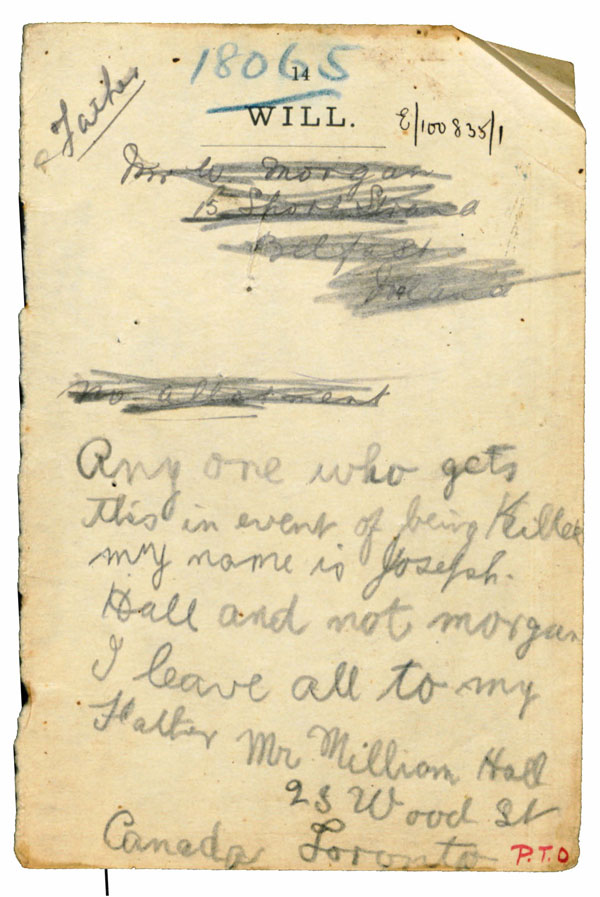 18065
14
Father
WILL.
E/100835/1
Mr W. Morgan
15 Strand
Belfast
no allotment
Any one who gets
this in event of being Killed
my name is Joseph.
Hall and not morgan
I leave all to my
Father Mr William Hall
23 Wood St
Canada Toronto
P.T.O